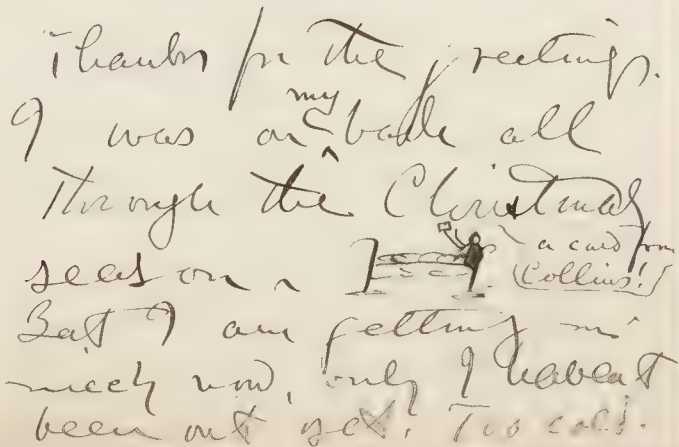 Thanks for the greetings.
I was on my back all
Through the Christmas
season
a card from
Collins!
But I am getting on
nicely now, only I haven't
been out yet. Too cold.